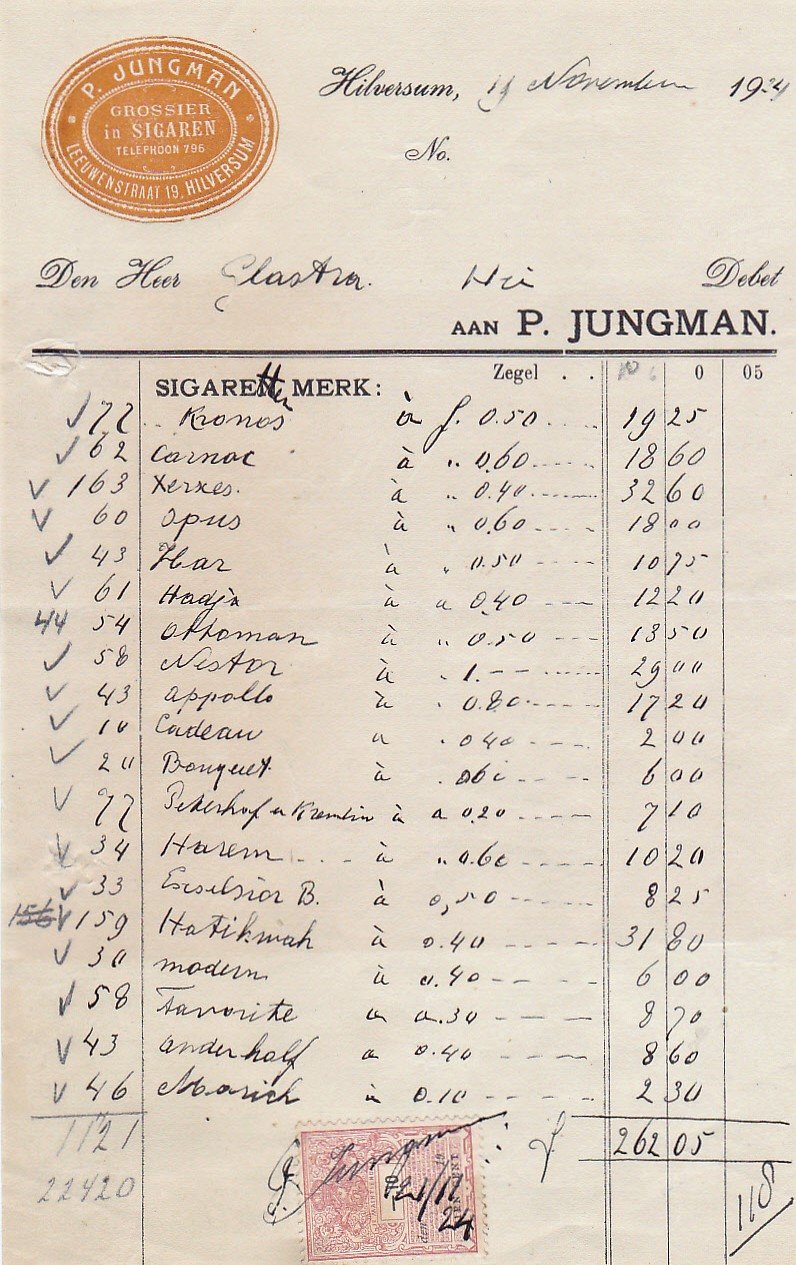 P. JUNGMAN
GROSSIER
in SIGAREN
TELEPHOON 796
LEEUWENSTRAAT 19, HILVERSUM
Hilversum, 19 November 1924
No.
Den Heer Glastra. Debet
AAN P. JUNGMAN.
SIGARETTEN MERK: Zegel . . 0 05
77 Kronos à f. 0.50 19 25
62 Carnac à „ 0,60 18 60
163 Xerxes. à „ 0.40 32 60
60 Opus à „ 0.60 18 00
43 Har à „ 0.50 10 75
61 Hadja à „ 0.40 12 20
44 54 Ottoman à „ 0.50 13 50
58 Nestor à „ 1.-- 29 00
43 appollo à „ 0.80 17 20
10 Cadeau à „ 0.40 2 00
20 Bouquet à „ 0.60 6 00
77 Peterhof en Kremlin à „ 0.20 7 10
34 Harem à „ 0.60 10 20
33 Excelsior B. à 0,50 8 25
156 159 Hatikwah à 0.40 31 80
30 modern à 0.40 6 00
58 Favorite à 0.30 8 70
43 anderhalf à 0.40 8 60
46 Marich à 0.10 2 30
1121 f 262 05
22420 118
P. Jungman
21/12
24